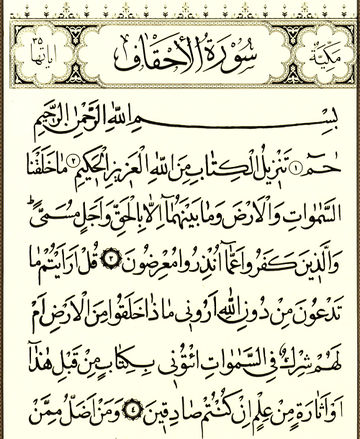 مكية سورة الأحقاف آياتها ٣٥
بسم الله الرحمن الرحيم
حٰمٓ ١ تَنْز۪يلُ الْكِتَابِ مِنَ اللّٰهِ الْعَز۪يزِ الْحَك۪يمِ ٢ مَا خَلَقْنَا
السَّمٰوَاتِ وَالْاَرْضَ وَمَا بَيْنَهُمَٓا اِلَّا بِالْحَقِّ وَاَجَلٍ مُسَمًّىۜ
وَالَّذ۪ينَ كَفَرُوا عَمَّٓا اُنْذِرُوا مُعْرِضُونَ ٣ قُلْ اَرَاَيْتُمْ مَا
تَدْعُونَ مِنْ دُونِ اللّٰهِ اَرُون۪ي مَاذَا خَلَقُوا مِنَ الْاَرْضِ اَمْ
لَهُمْ شِرْكٌ فِي السَّمٰوَاتِ ا۪يتُون۪ي بِكِتَابٍ مِنْ قَبْلِ هٰذَٓا
اَوْ اَثَارَةٍ مِنْ عِلْمٍ اِنْ كُنْتُمْ صَادِق۪ينَ ٤ وَمَنْ اَضَلُّ مِمَّنْ